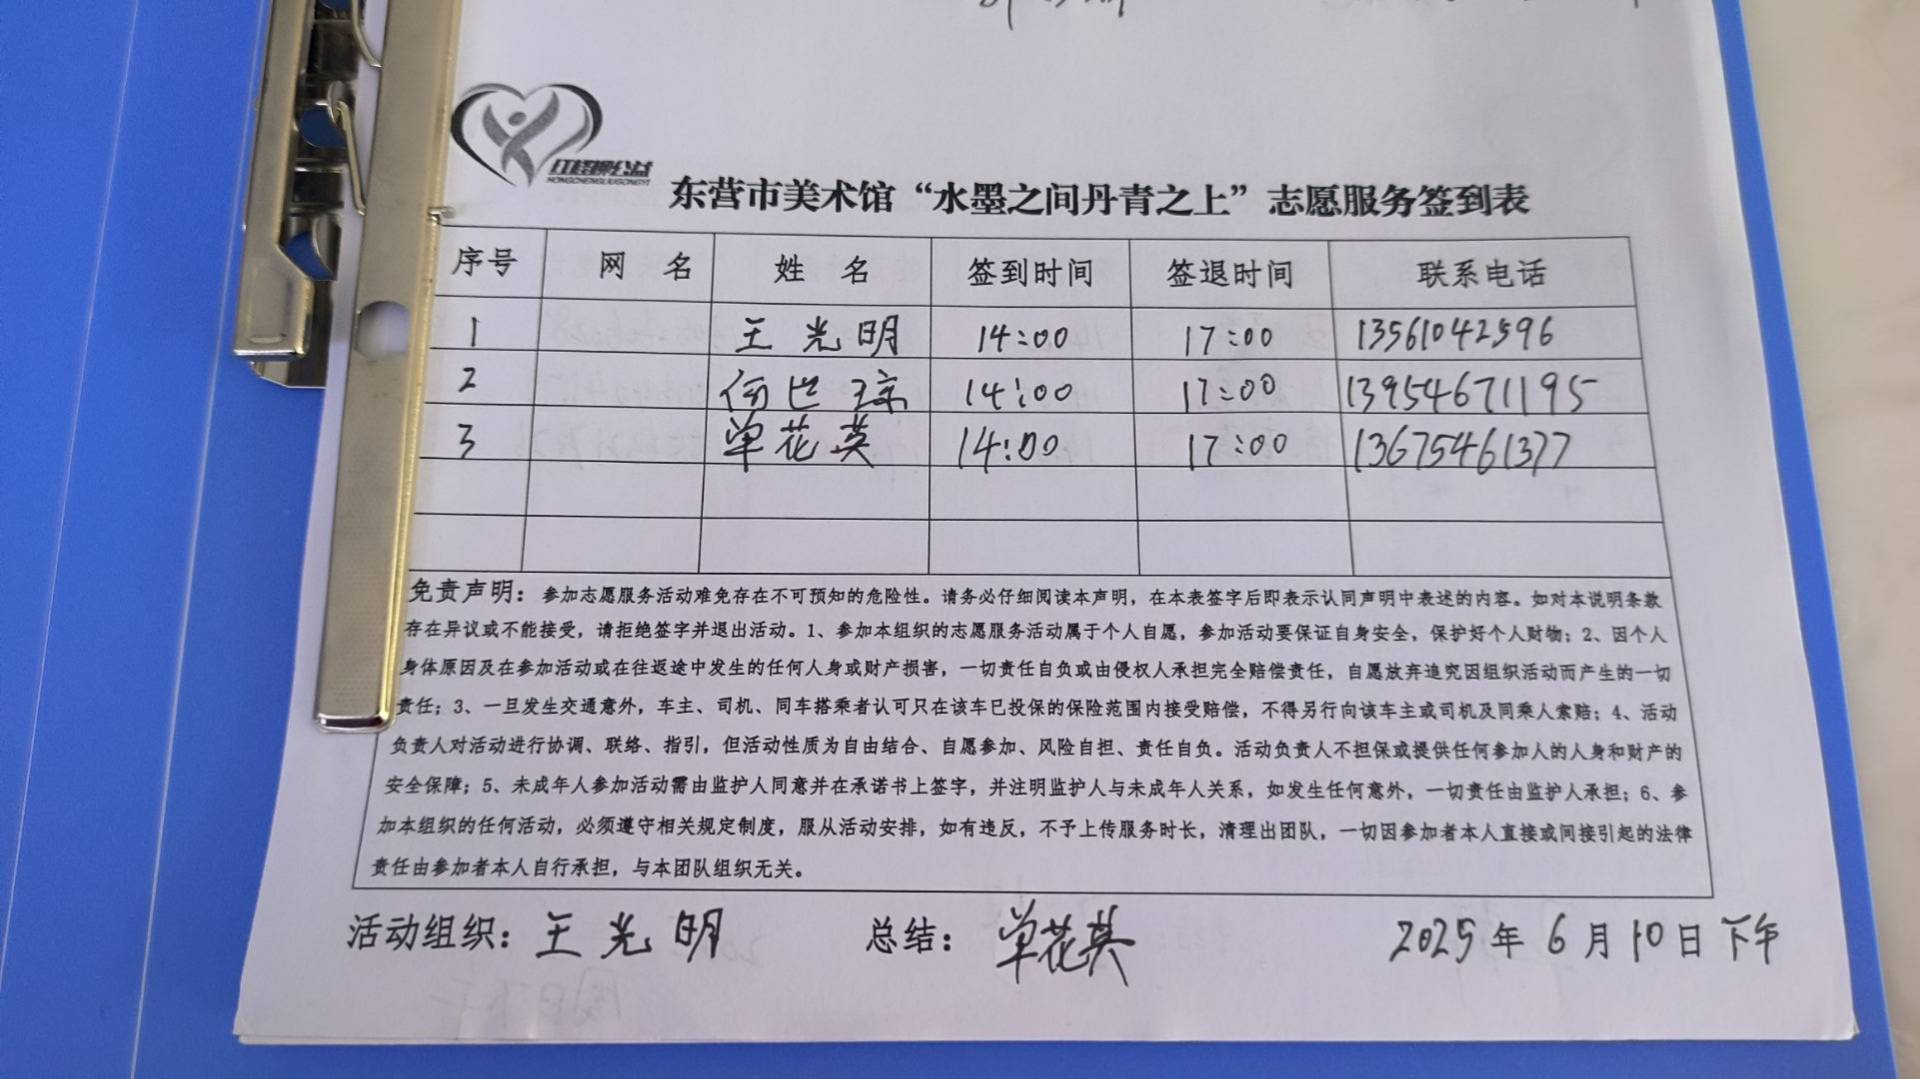 HONGCHENGLIUGONGYI
东营市美术馆“水墨之间丹青之上”志愿服务签到表
序号 网 名 姓 名 签到时间 签退时间 联系电话
1 王光明 14:00 17:00 13561042596
2 何世琼 14:00 17:00 13954671195
3 单花英 14:00 17:00 13675461377
免责声明：参加志愿服务活动难免存在不可预知的危险性。请务必仔细阅读本声明，在本表签字后即表示认同声明中表述的内容。如对本说明条款
存在异议或不能接受，请拒绝签字并退出活动。1、参加本组织的志愿服务活动属于个人自愿，参加活动要保证自身安全，保护好个人财物；2、因个人
身体原因及在参加活动或在往返途中发生的任何人身或财产损害，一切责任自负或由侵权人承担完全赔偿责任，自愿放弃追究因组织活动而产生的一切
责任；3、一旦发生交通意外，车主、司机、同车搭乘者认可只在该车已投保的保险范围内接受赔偿，不得另行向该车主或司机及同乘人索赔；4、活动
负责人对活动进行协调、联络、指引，但活动性质为自由结合、自愿参加、风险自担、责任自负。活动负责人不担保或提供任何参加人的人身和财产的
安全保障；5、未成年人参加活动需由监护人同意并在承诺书上签字，并注明监护人与未成年人关系，如发生任何意外，一切责任由监护人承担；6、参
加本组织的任何活动，必须遵守相关规定制度，服从活动安排，如有违反，不予上传服务时长，清理出团队，一切因参加者本人直接或间接引起的法律
责任由参加者本人自行承担，与本团队组织无关。
活动组织：王光明 总结：单花英 2025年6月10日下午